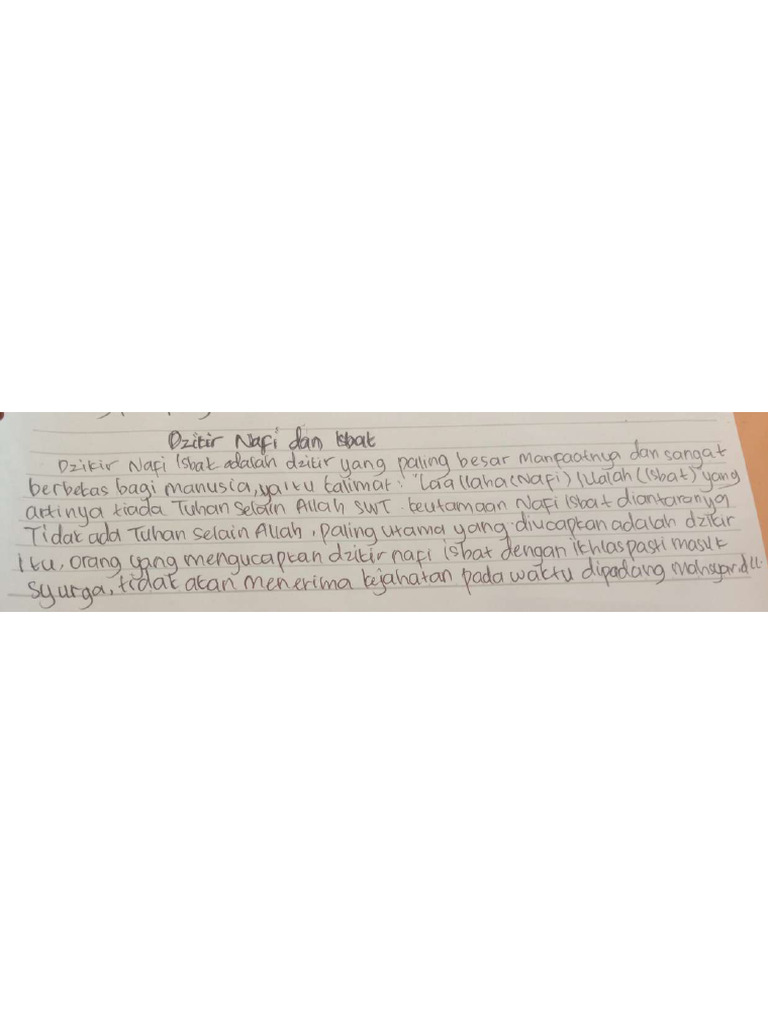 Dzikir Nafi dan Isbat
Dzikir Nafi Isbat adalah dzikir yang paling besar manfaatnya dan sangat
berbekas bagi manusia, yaitu kalimat: "Laa Ilaha (Nafi) Illalah (Isbat)" yang
artinya tiada Tuhan selain Allah SWT. keutamaan Nafi Isbat diantaranya
Tidak ada Tuhan selain Allah, paling utama yang diucapkan adalah dzikir
itu, orang yang mengucapkan dzikir nafi isbat dengan ikhlas pasti masuk
syurga, tidak akan menerima kejahatan pada waktu dipadang mahsyar dll.